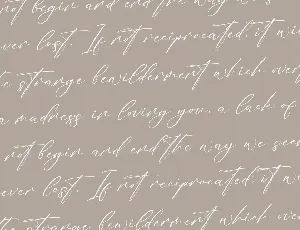 not begin and end the way we
ever lost. If not reciprocated, it wi
he strange bewilderment which over
a madness in loving you, a lack of
not begin and end the way we seem
ever lost. If not reciprocated it wi
the strange bewilderment which over